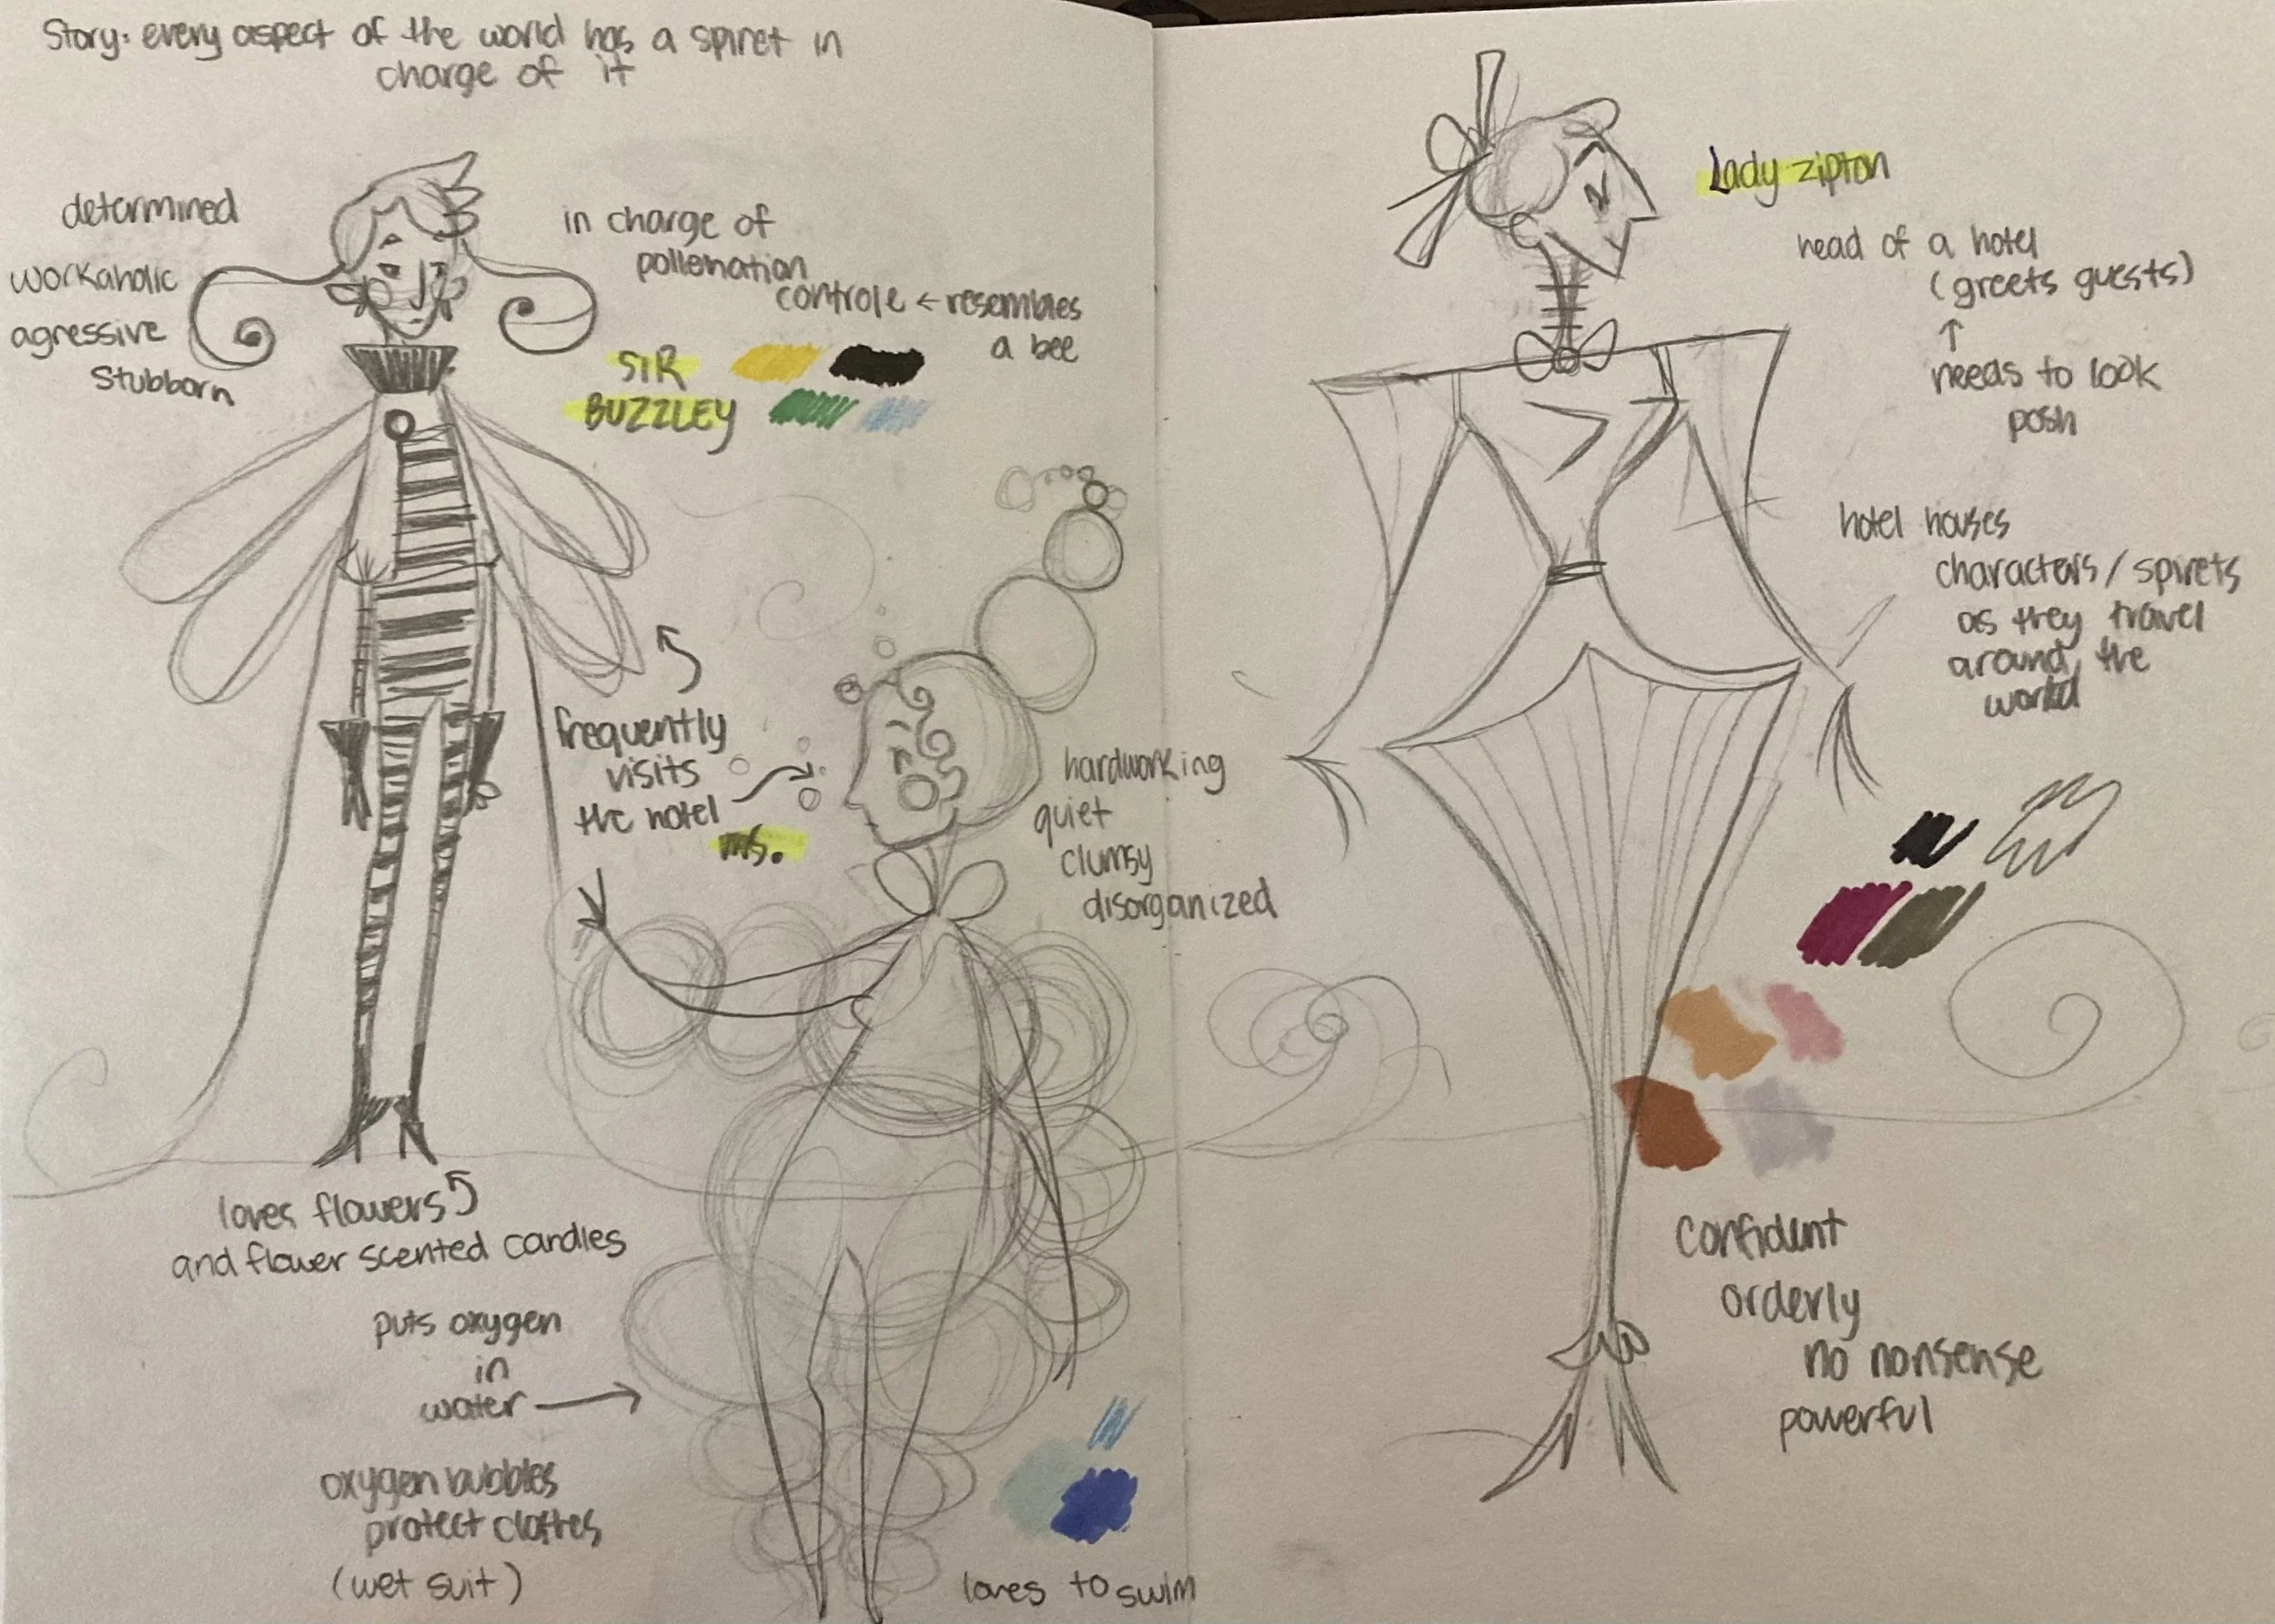 Story: every aspect of the world has a spiret in
charge of it
determined
workaholic
agressive
Stubborn
in charge of
pollenation
controle ← resembles
a bee
SIR
BUZZLEY
frequently
visits
the hotel
ms.
hardworking
quiet
clumsy
disorganized
loves flowers
and flower scented candles
puts oxygen
in
water →
oxygen bubbles
protect clothes
(wet suit)
loves to swim
Lady zipton
head of a hotel
(greets guests)
↑
needs to look
posh
hotel houses
characters/spirets
as they travel
around the
world
Confident
orderly
no nonsense
powerful